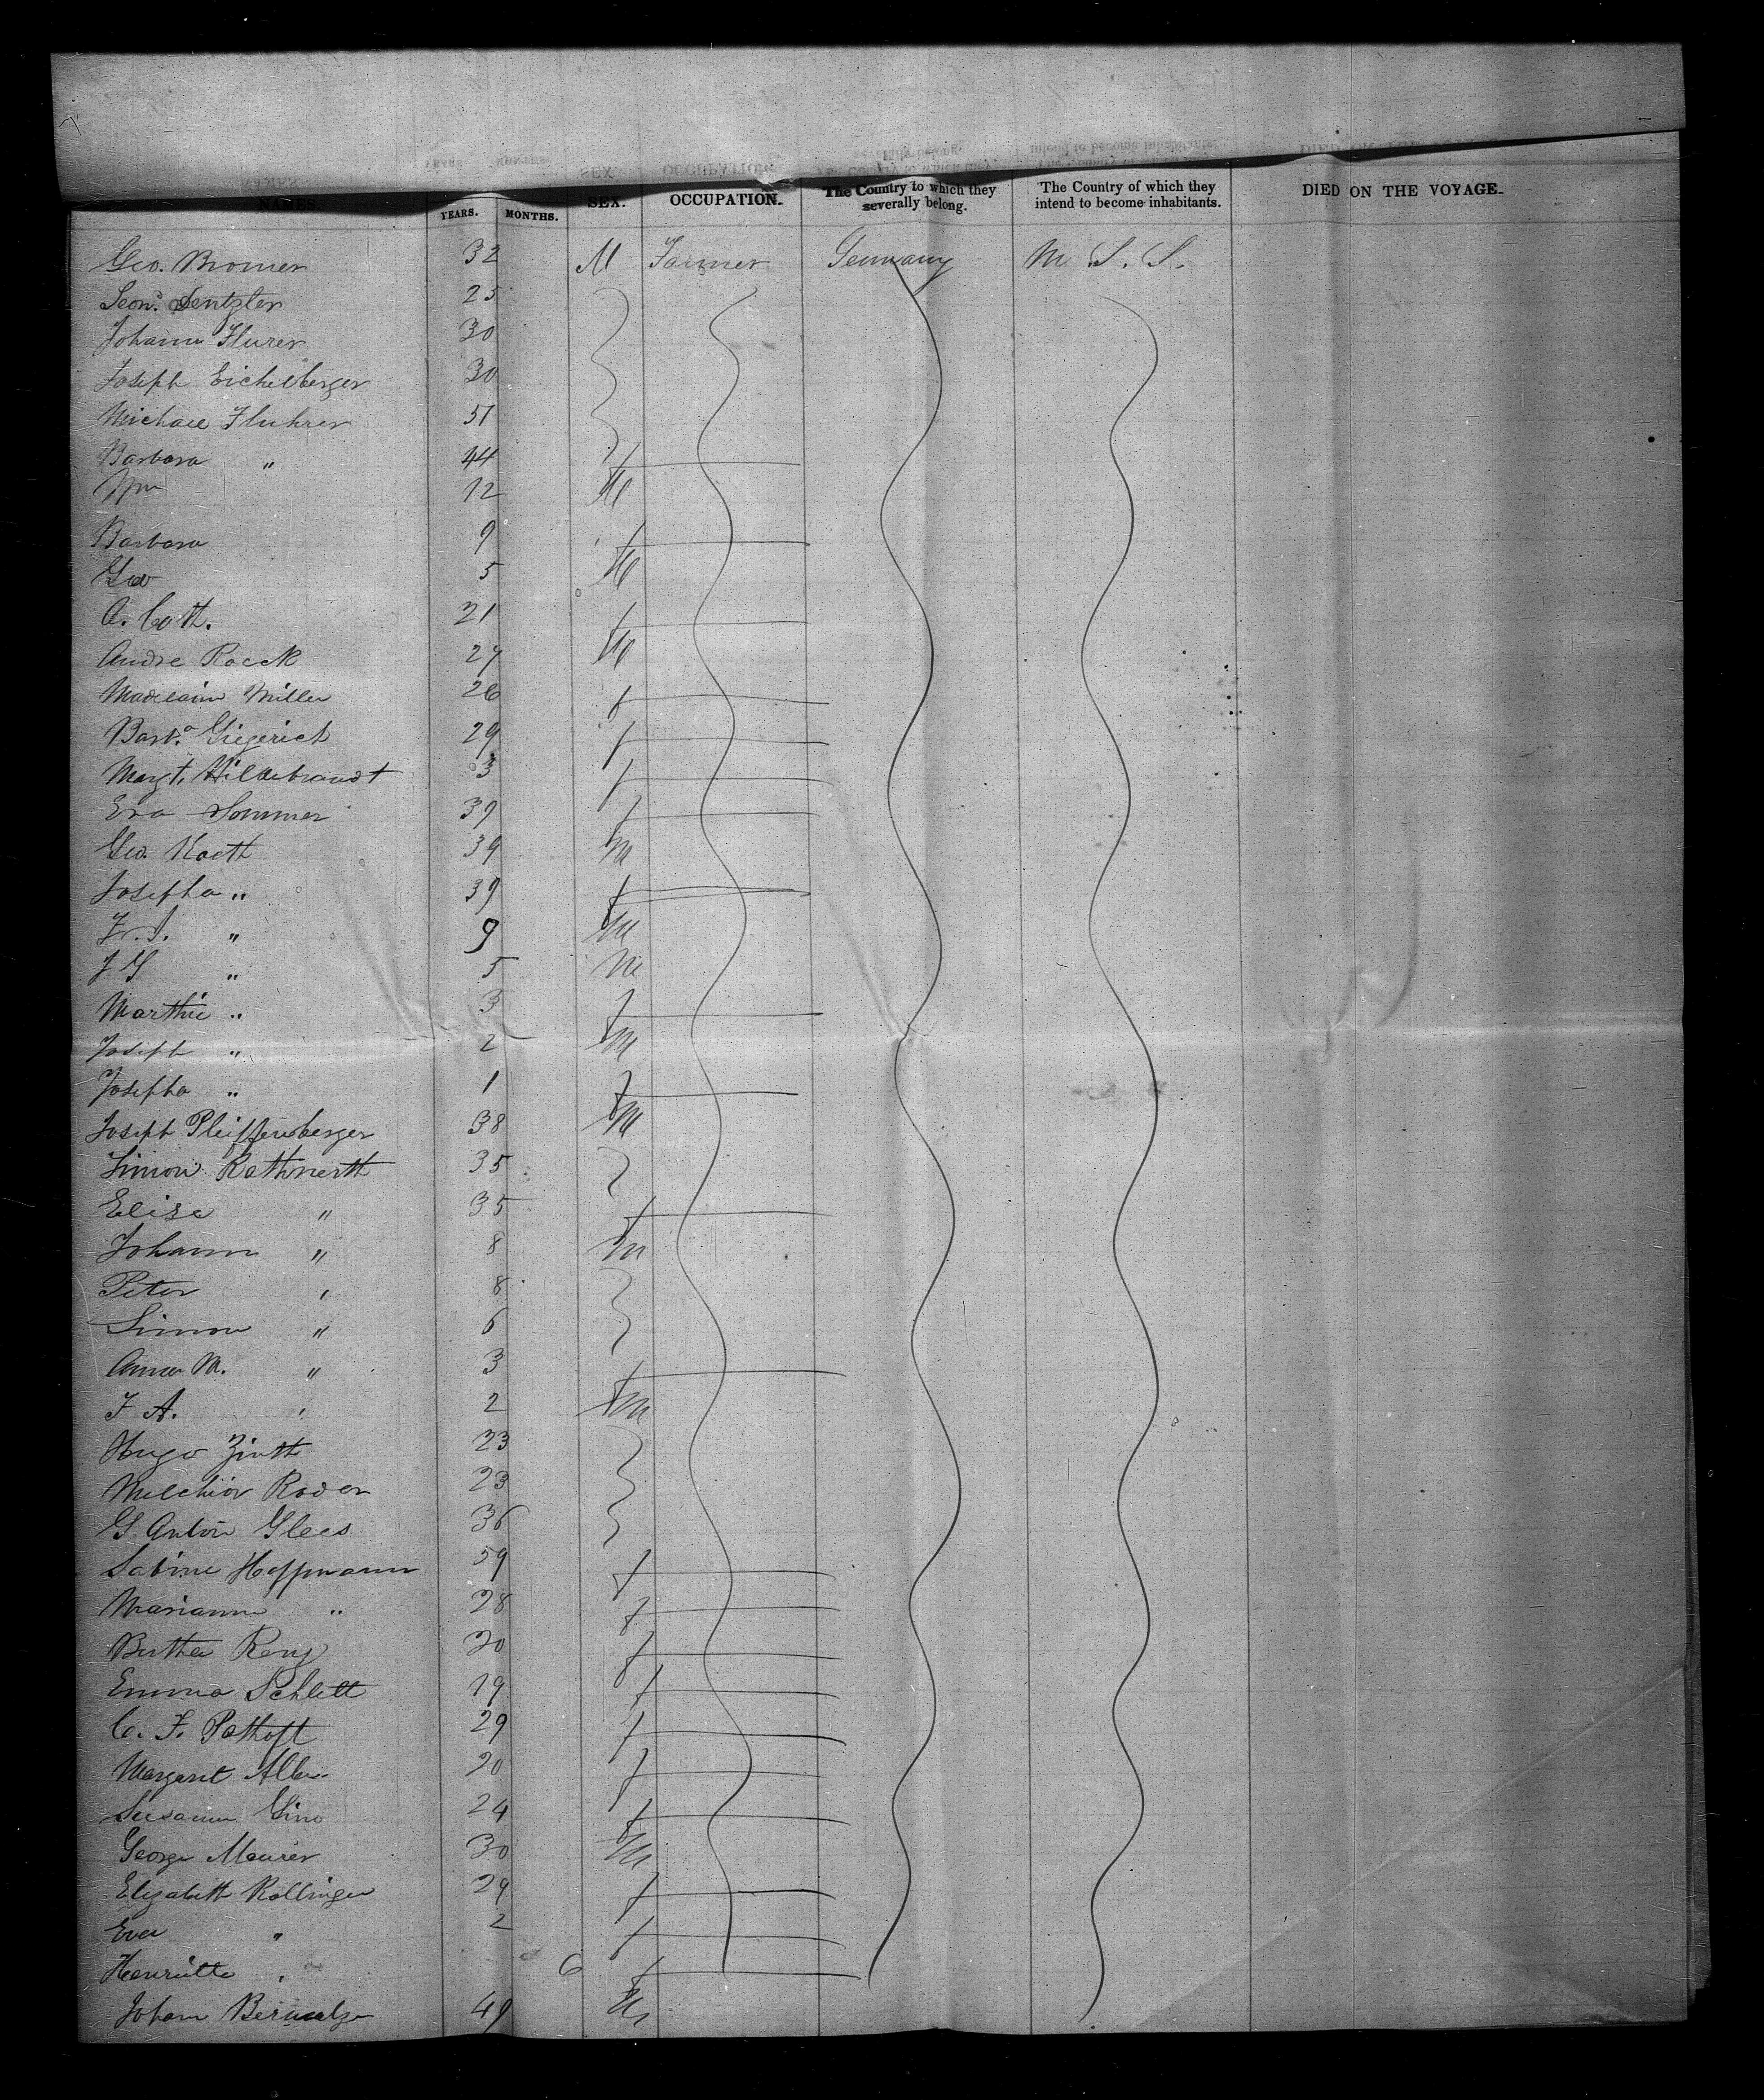 NAMES. YEARS. MONTHS. SEX. OCCUPATION. The Country to which they severally belong. The Country of which they intend to become inhabitants. DIED ON THE VOYAGE.
Geo. Bromer 32 M Farmer Germany
Leon. Sentzler 25
Johann Flurer 30
Joseph Eichelberger 30
Michael Fluhrer 51
Barbara " 44 f
Wm 12 M
Barbara 9 f
Geo 5 M
A. Coth. 21 f
Andre Roeck 27 M
Madelain Miller 26 f
Barb.a Giegerich 29 f
Margt. Hildebrandt 3 f
Eva Sommer 39 f
Geo. Koeth 39 m
Josepha " 39 f
Fr. J. " 9 m
J G " 5 m
Marthie " 3 f
Joseph " 2 m
Josepha " 1 f
Joseph Pleiffenberger 38 m
Simon Rothnerth 35
Elise " 35 f
Johann " 8 m
Peter " 8
Simon " 6
Anna M. " 3 f
F A. " 2 m
Hugo Zinth 23
Melchior Roder 23
G. Anton Glees 36
Sabine Hoffmann 59 f
Mariann " 28 f
Bertha Reny 20 f
Emma Schlett 19 f
C. F. Pothoft 29 f
Margaret Alber 20 f
Susann Sino 24 f
George Maurer 30 m
Elizabeth Rollinger 29 f
Eva " 2 f
Henriette " 6 f
Johann 49 m